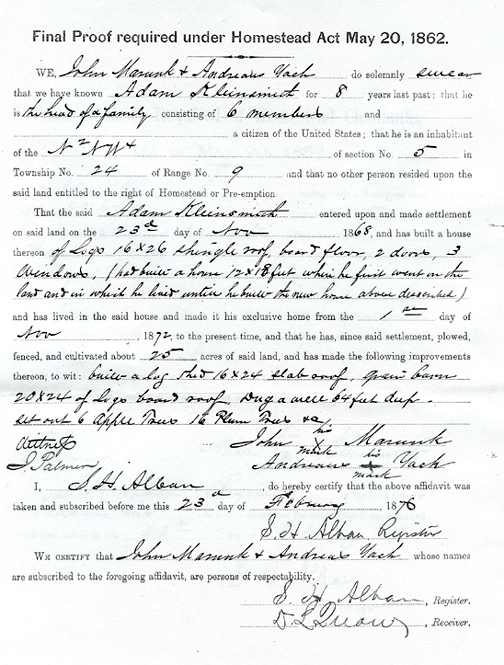 Final Proof required under Homestead Act May 20, 1862.
WE, John Marunk & Andreaus Yach do solemnly swear
that we have known Adam Kleinsmith for 8 years last past; that he
is the head of a family consisting of 6 members and
a citizen of the United States; that he is an inhabitant
of the N ½ N W ¼ of section No. 5 in
Township No. 24 of Range No. 9 and that no other person resided upon the
said land entitled to the right of Homestead or Pre-emption.
That the said Adam Kleinsmith entered upon and made settlement
on said land on the 23d day of Nov 1868, and has built a house
thereon of Logs 16x26 shingle roof, board floor, 2 doors, 3
Windows, (had built a house 12x18 feet when he first went on the
land and in which he lived until he built the new house above described)
and has lived in the said house and made it his exclusive home from the 1st day of
Nov 1872, to the present time, and that he has, since said settlement, plowed,
fenced, and cultivated about 25 acres of said land, and has made the following improvements
thereon, to wit: built a log shed 16x24 slab roof, grain barn
20x24 of Logs board roof Dug a well 64 feet deep.
set out 6 Apple Trees 16 Plum Trees &c
Witness John his x mark Marunk
J. Palmer Andreaus his x mark Yach
I, S. H. Alban, do hereby certify that the above affidavit was
taken and subscribed before me this 23d day of February 1876
S. H. Alban Register
WE CERTIFY that John Marunk & Andreas Yach whose names
are subscribed to the foregoing affidavit, are persons of respectability.
S. H. Alban, Register.
D. L. Quaw, Receiver.